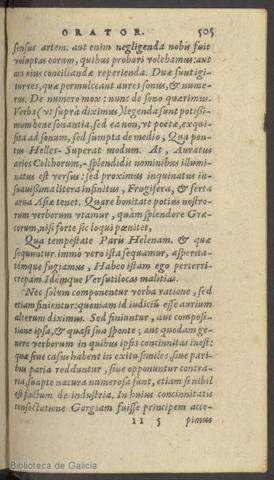 ORATOR. 505
sensus artem. aut enim negligenda nobis fuit
voluptas eorum, quibus probari volebamus: aut
ars eius conciliandæ reperienda. Duæ sunt igi-
tur res, quæ permulceant aures sonus, & nume-
rus. De numero mox: nunc de sono quærimus.
Verba (vt suprà diximus) legenda sunt potißi-
mum bene sonantia, sed ea non, vt poetæ, exqui-
sita ad sonum, sed sumpta de medio, Qua pon-
tus Helles- Superat modum. At, Auratus
aries Colchorum,- splendidis nominibus illumi-
natus est versus: sed proximus inquinatus in-
suauißima litera infinitus, Frugifera, & ferta
arua Asiæ tenet. Quare bonitate potius nostro-
rum verborum vtamur, quàm splendore Græ-
corum, nisi forte sic loqui pœnitet,
Qua tempestate Paris Helenam, & quæ
sequuntur. immo vero ista sequamur, asperita-
temque fugiamus, Habeo istam ego perterri-
crepam. Idemque Versutilocas malitias.
Nec solum componentur verba ratione, sed
etiam finientur: quoniam id iudiciū esse aurium
alterum diximus. Sed finiuntur, aut composi-
tione ipsa, & quasi sua sponte; aut quodam ge-
nere verborum in quibus ipsis concinnitas inest:
quæ siue casus habent in exitu similes, siue pari-
bus paria redduntur, siue opponuntur contra-
ria, suapte natura numerosa sunt, etiam si nihil
est factum de industria. In huius concinnitatis
consectatione Gorgiam fuisse principem acce-
II 5 pimus
Biblioteca de Galicia